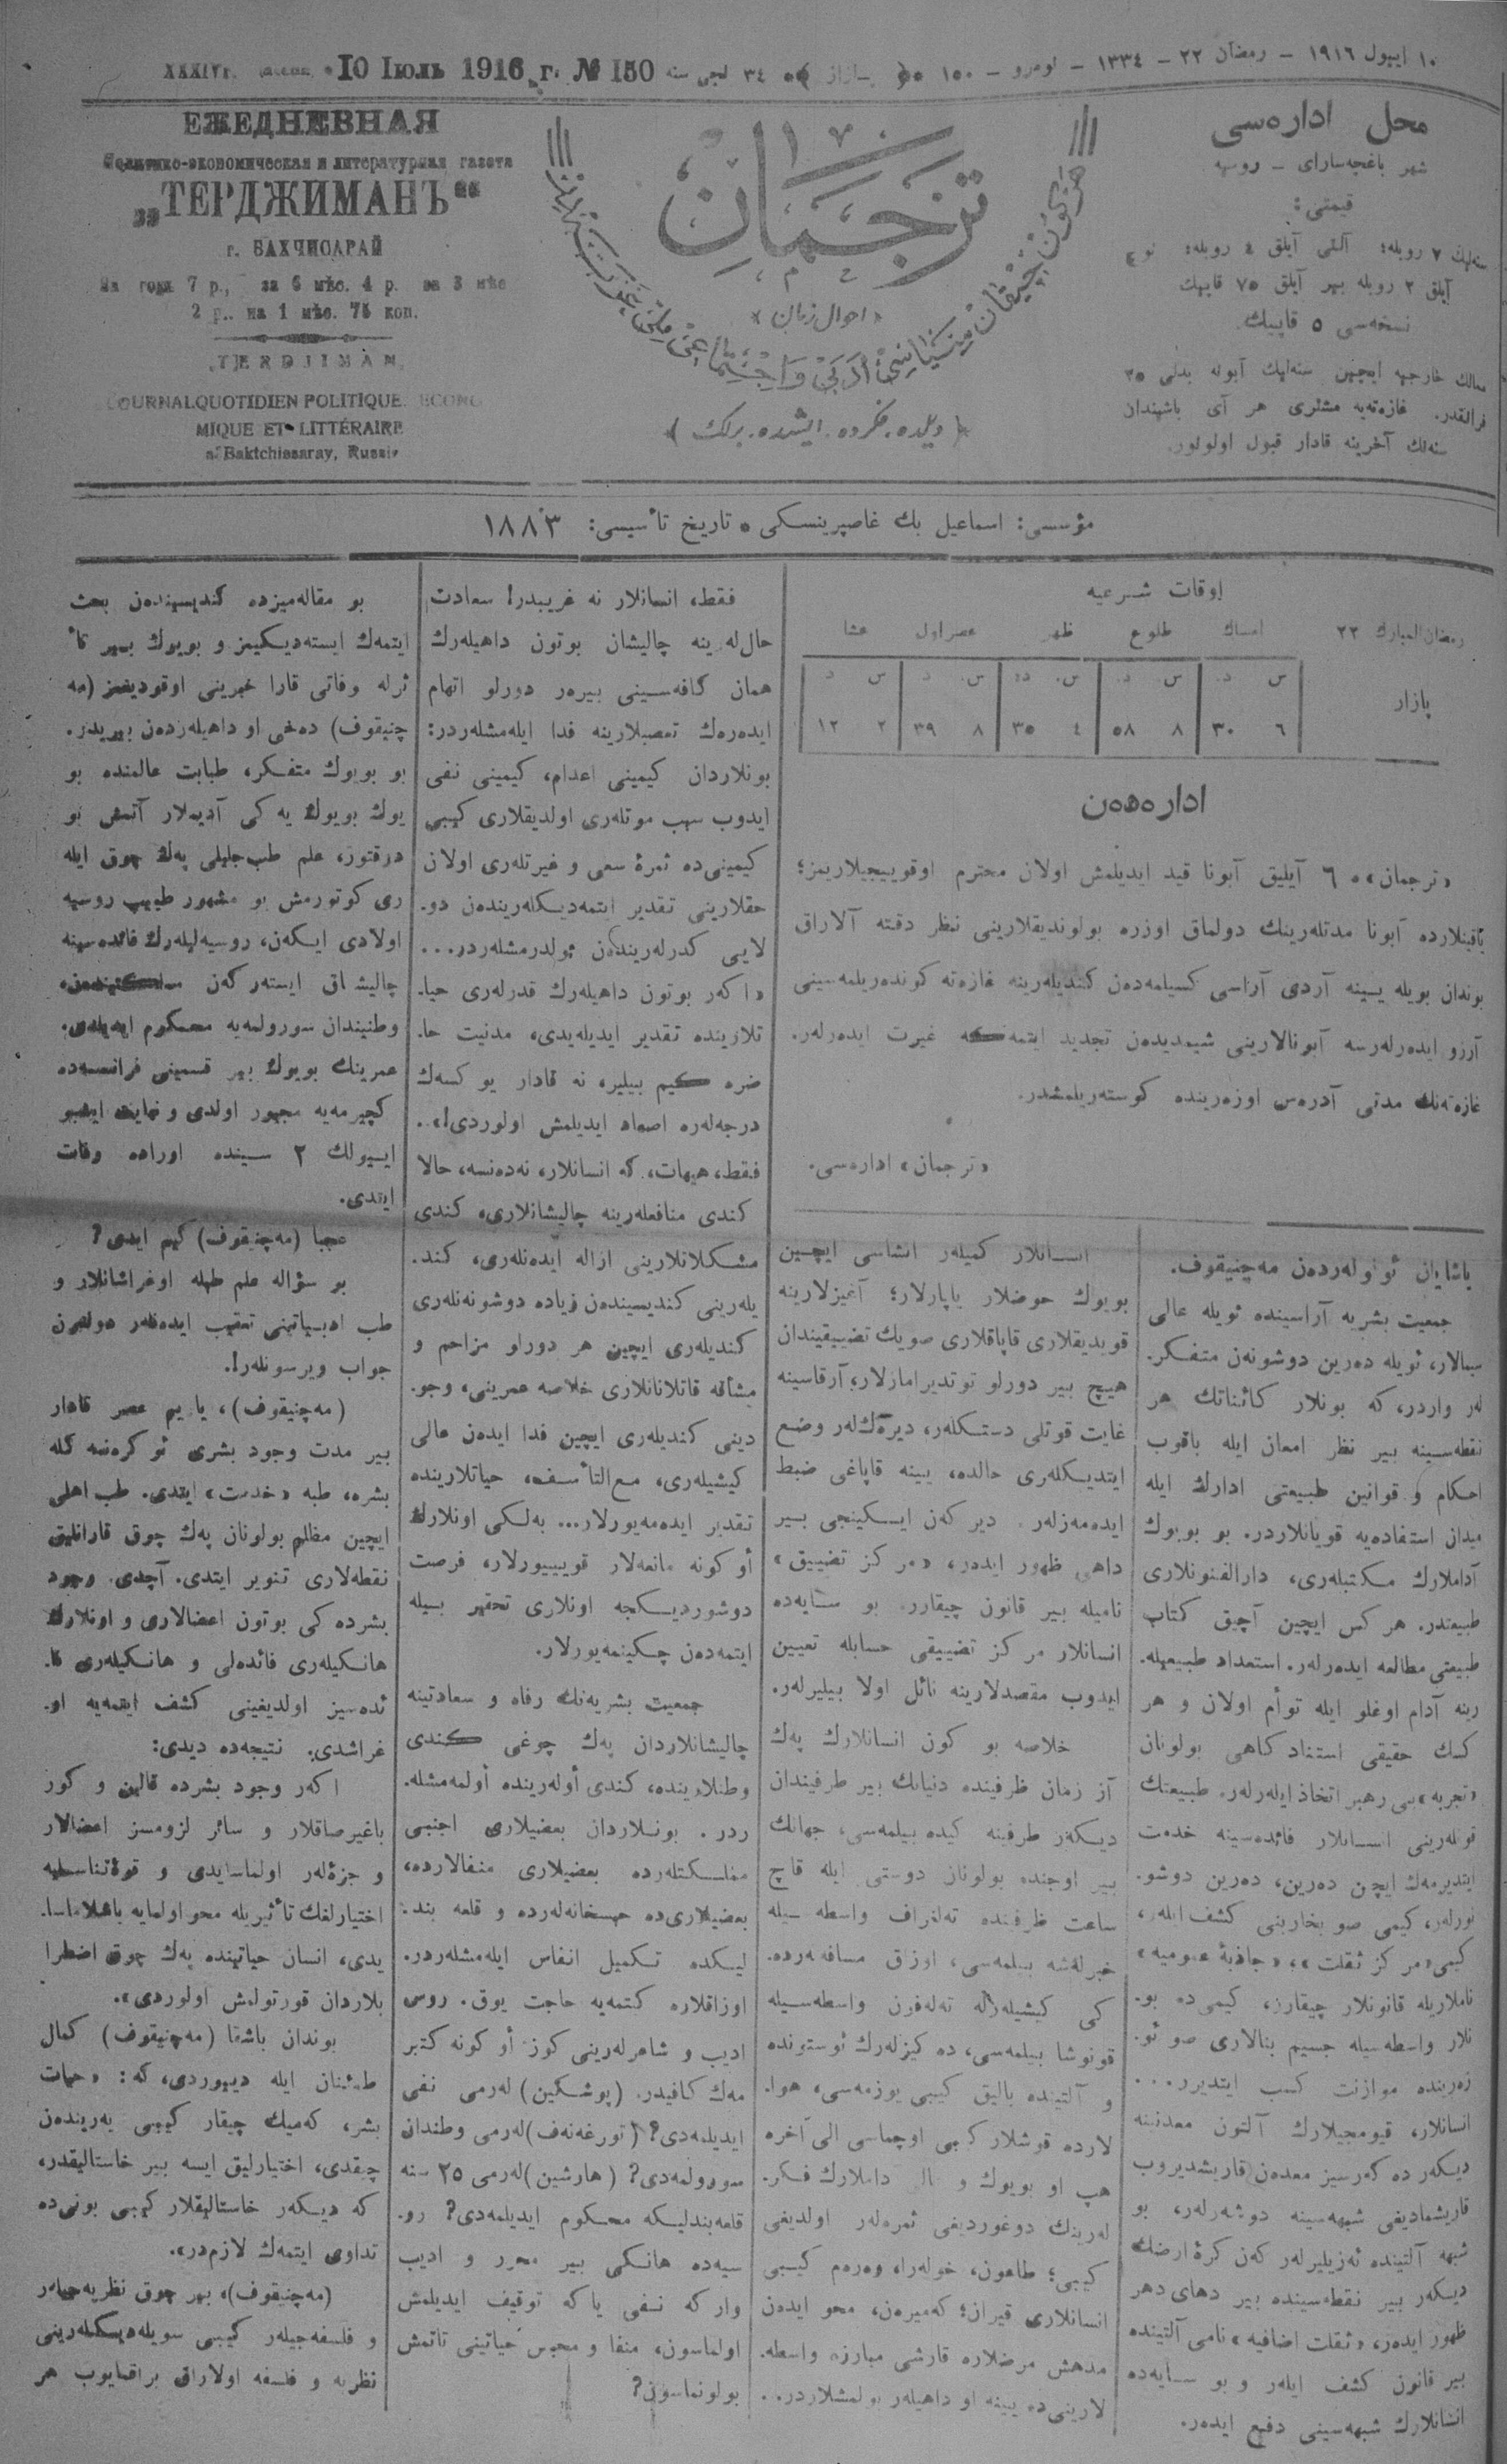 ١٠ ايیول ١٩١٦ – رمضان ٢٢ – ١٣٣٤ – نومرو – ١٥٠ پازار ٣٤ نجی سنه 10 Іюль 1916 г. № 150 XXXIV г.
محل اداره‌سی
شهر باغچه‌سارای – روسیه
قیمتی:
سنه‌لیك ٧ روبله؛ آلتی آیلق ٤ روبله؛
آیلق ٢ روبله بیر آیلق ٧٥ قاپیك
نسخه‌سی ٥ قاپیك
ممالك خارجیه ایچین سنه‌لیك آبونه بدلی ٢٥
فرانقدر. غازه‌ته‌یه مشتری هر آی باشیندان
سنه‌لك آخرینه قادار قبول اولونور.
ترجمان
«احوال زمان»
(دیلده، فكرده، ایشده، برلك)
ЕЖЕДНЕВНАЯ
Политико-экономическая и литературная газета
„ТЕРДЖИМАНЪ“
г. БАХЧИСАРАЙ
На годъ 7 р., за 6 мѣс. 4 р. за 3 мѣс
2 р.. на 1 мѣс. 75 коп.
„TERDJIMAN„
JOURNAL QUOTIDIEN POLITIQUE. ECONO
MIQUE ET LITTÉRAIRE
a Baktchissaray, Russie
مؤسسی: اسماعیل بك غاصپرینسكی • تاریخ تأسیسی: ١٨٨٣
اوقات شرعیه
رمضان المبارك ٢٢ امساك طلوع ظهر عصر اول عشا
پازار
س د س د س د س د س د
٦ ٣٠ ٨ ٥٨ ٤ ٣٥ ٨ ٣٩ ٢ ١٢
اداره‌دەن
«ترجمان»ه ٦ آیلیق آبونا قید ایدیلمش اولان محترم اوقوییجیلاریمز؛
یاقینلارده آبونا مدتله‌رینك دولماق اوزره بولوندیقلارینی نظر دقته آلاراق
بوندان بویله یینه آردی آراسی كسیلمه‌دن كندیله‌رینه غازه‌ته كونده‌ریلمه‌سینی
آرزو ایده‌رله‌رسه آبونالارینی شیمدیدن تجدید ایتمه‌كه غیرت ایده‌رله‌ر.
غازه‌ته‌نك مدتی آدره‌س اوزه‌رینده كوسته‌ریلمشدر.
«ترجمان» اداره‌سی.
یاشایان ئولوله‌ردەن مه‌چنیقوف.
جمعیت بشریه آراسینده ئویله عالی
سیمالار، ئویله ده‌رین دوشونه‌ن متفكر.
له‌ر واردر، كه بونلار كائناتك هر
نقطه‌سینه بیر نظر امعان ایله باقوب
احكام و قوانین طبیعتی ادارك ایله
میدان استفاده‌یه قویانلاردر. بو بویوك
آداملارك مكتبله‌ری، دارالفنونلاری
طبیعتدر. هر كس ایچین آچیق كتاب
طبیعتی مطالعه ایده‌رله‌ر. استعداد طبیعیله.
رینه آدام اوغلو ایله توأم اولان و هر
كسك حقیقی استنادكاهی بولونان
«تجربه»یی رهبر اتخاذ ایله‌رله‌ر. طبیعتك
قوتله‌رینی انسانلار فائده‌سینه خدمت
ایتدیرمه‌ك ایچن ده‌رین، ده‌رین دوشو.
نورله‌ر، كیمی صو بخارینی كشف ایله‌ر،
كیمی «مركز ثقلت»، «جاذبهٔ عمومیه»
ناملاریله قانونلار چیقارر، كیمی‌ده بو.
نلار واسطه‌سیله جسیم بنالاری صو ئو.
زه‌رینده موازنت كسب ایتدیرر...
انسانلار، قیومجیلارك آلتون معدننه
دیكه‌ر ده كه‌رسیز معدەن قاریشدیروب
قاریشمادیغی شبهه‌سینه دوشه‌رله‌ر، بو
شبهه آلتینده ئه‌زیلیرله‌ر كه‌ن كرهٔ ارضك
دیكه‌ر بیر نقطه‌سینده بیر دهای دهر
ظهور ایده‌ر، «ثقلت اضافیه» نامی آلتینده
بیر قانون كشف ایله‌ر و بو سایه‌ده
انسانلارك شبهه‌سینی دفع ایده‌ر.
انسانلار كمیله‌ر انشاسی ایچین
بویوك حوضلار یاپارلار؛ آغیزلارینه
قویدیقلاری قاپاقلاری صویك تضییقیندان
هیچ بیر دورلو توتدیرامازلار؛ آرقاسینه
غایت قوتلی دستكله‌ر، دیره‌ك‌له‌ر وضع
ایتدیكله‌ری حالده، یینه قاپاغی ضبط
ایده‌مه‌زله‌ر. دیر كه‌ن ایكینجی بیر
داهی ظهور ایده‌ر، «مركز تضییق»
نامیله بیر قانون چیقارر. بو سایه‌ده
انسانلار مركز تضییقی حسابله تعیین
ایدوب مقصدلارینه نائل اولا بیلیرله‌ر.
خلاصه بو كون انسانلارك پەك
آز زمان ظرفینده دنیانك بیر طرفیندان
دیكه‌ر طرفینه كیده بیلمه‌سی، جهانك
بیر اوجنده بولونان دوستی ایله قاچ
ساعت ظرفنده ته‌لغراف واسطه‌سیله
خبرله‌شه بیلمه‌سی، اوزاق مسافه‌رده.
كی كیشیله‌رله ته‌له‌فون واسطه‌سیله
قونوشا بیلمه‌سی، ده‌كیزله‌رك ئوستونده
و آلتینده بالیق كیبی یوزمه‌سی، هوا.
لارده قوشلار كیبی اوچماسی الی آخره
هپ او بویوك و داملارك فكر.
له‌رینك دوغوردیغی ثمره‌له‌ر اولدیغی
كیبی؛ طاعون، خوله‌را، وه‌ره‌م كیبی
انسانلاری قیران؛ كه‌میره‌ن، محو ایدەن
مدهش مرضلاره قارشی مبارزه واسطه.
لارینی‌ده یینه او داهیله‌ر بولمشلاردر..
فقط، انسانلار نه غریبدر! سعادت
حال‌له‌رینه چالیشان بوتون داهیله‌رك
همان كافه‌سینی بیره‌ر دورلو اتهام
ایده‌ره‌ك تعصبلارینه فدا ایله‌مشله‌ردر:
بونلاردان كیمینی اعدام، كیمینی نفی
ایدوب سبب موتله‌ری اولدیقلاری كیبی
كیمینی‌ده ثمرهٔ سعی و غیرتله‌ری اولان
حقلارینی تقدیر ایتمه‌دیكله‌ریندەن دو.
لایی كدرله‌ریندەن ئولدرمشله‌ردر...
«اكه‌ر بوتون داهیله‌رك قدرله‌ری حیا.
تلارینده تقدیر ایدیله‌یدی، مدنیت حا.
ضره كیم بیلیر، نه قادار یوكسه‌ك
درجه‌له‌ره اصعاد ایدیلمش اولوردی!»..
فقط، هیهات، كه انسانلار، نه‌ده‌نسه، حالا
كندی منافعله‌رینه چالیشانلاری، كندی
مشكلاتلارینی ازاله ایده‌نله‌ری، كند.
یله‌رینی كندیسیندەن زیاده دوشونه‌نله‌ری
كندیله‌ری ایچین هر دورلو مزاحم و
مشاقه قاتلانانلاری خلاصه عمرینی، وجو.
دینی كندیله‌ری ایچین فدا ایدەن عالی
كیشیله‌ری، مع‌التأسف، حیاتلارینده
تقدیر ایده‌مه‌یورلار... به‌لكی اونلارك
أوكونه مانعه‌لار قویییورلار، فرصت
دوشوردیكجه اونلاری تحقیر بیله
ایتمه‌دەن چكینمه‌یورلار.
جمعیت بشریه‌نك رفاه و سعادتینه
چالیشانلاردان پەك چوغی كندی
وطنلارینده، كندی أوله‌رینده أولمه‌مشله.
ردر. بونلاردان بعضیلاری اجنبی
مملكتله‌رده بعضیلاری منفالارده،
بعضیلاری‌ده حبسخانه‌له‌رده و قلعه بند.
لیكده تكمیل انفاس ایله‌مشله‌ردر.
اوزاقلاره كتمه‌یه حاجت یوق. روس
ادیب و شاعرله‌رینی كوز أوكونه كتیر
مه‌ك كافیدر. (پوشكین) له‌رمی نفی
ایدیلمه‌دی؟ (تورغه‌نه‌ف) له‌رمی وطندان
سورولمه‌دی؟ (هارشین) له‌رمی ٢٥ سنه
قلعه‌بندلیكه محكوم ایدیلمه‌دی؟ رو.
سیه‌ده هانكی بیر محرر و ادیب
وار كه نفی یا كه توقیف ایدیلمش
اولماسون، منفا و محبس حیاتینی تاتمش
بولونماسون؟
بو مقاله‌میزده كندیسیندەن بحث
ایتمه‌ك ایسته‌دیكیمز و بویوك بیر تأ
ثرله وفاتی قارا خبرینی اوقودیغمز (مه
چنیقوف) ده‌خی او داهیله‌ردەن بیریدر.
بو بویوك متفكر، طبابت عالمنده بو
یوك بویوك یه كی آدیملار آتمش بو
دوقتور، علم طب جلیلی پەك چوق ایله
ری كوتورمش بو مشهور طبیب روسیه
اولادی ایكه‌ن، روسیه‌لیله‌رك فائده‌سینه
چالیشاق ایسته‌ركه‌ن
وطنیندان سورولمه‌یه محكوم ایدیلدی.
عمرینك بویوك بیر قسمینی فرانسه‌ده
كچیرمه‌یه مجبور اولدی و نهایت ایشبو
ایییولك ٢ سینده اوراده وفات
ایتدی.
عجبا (مه‌چنیقوف) كیم ایدی؟
بو سؤاله علم طبله اوغراشانلار و
طب ادبیاتینی تعقیب ایده‌نله‌ر
جواب ویرسونله‌ر!.
(مه‌چنیقوف)، یاریم عصر قادار
بیر مدت وجود بشری ئوكره‌نمه‌كله
بشره، طبه «خدمت» ایتدی. طب اهلی
ایچین مظلم بولونان پەك چوق قارانلیق
نقطه‌لاری تنویر ایتدی. آچدی. وجود
بشرده كی بوتون اعضالاری و اونلارك
هانكیله‌ری فائده‌لی و هانكیله‌ری فا.
ئده‌سیز اولدیغینی كشف ایتمه‌یه او.
غراشدی. نتیجه‌ده دیدی:
اكه‌ر وجود بشرده قالین و كور
باغیرصاقلار و سائر لزومسز اعضالار
و جزؤله‌ر اولماسایدی و قوهٔ تناسلیه
اختیارلغك تأثیریله محو اولمایه باشلاماسا.
یدی، انسان حیاتینده پەك چوق اضطرا
بلاردان قورتولمش اولوردی».
بوندان باشقا (مه‌چنیقوف) كمال
طمئنان ایله دییوردی، كه: «حیات
بشر، كه‌میك چیقار كیبی یه‌ریندەن
چیقدی، اختیارلیق ایسه بیر خاستالیقدر،
كه دیكه‌ر خاستالیقلار كیبی بونی‌ده
تداوی ایتمه‌ك لازمدر».
(مه‌چنیقوف)، بیر چوق نظریه‌جیله‌ر
و فلسفه‌جیله‌ر كیبی سویله‌دیكله‌رینی
نظریه و فلسفه اولاراق براقمایوب هر